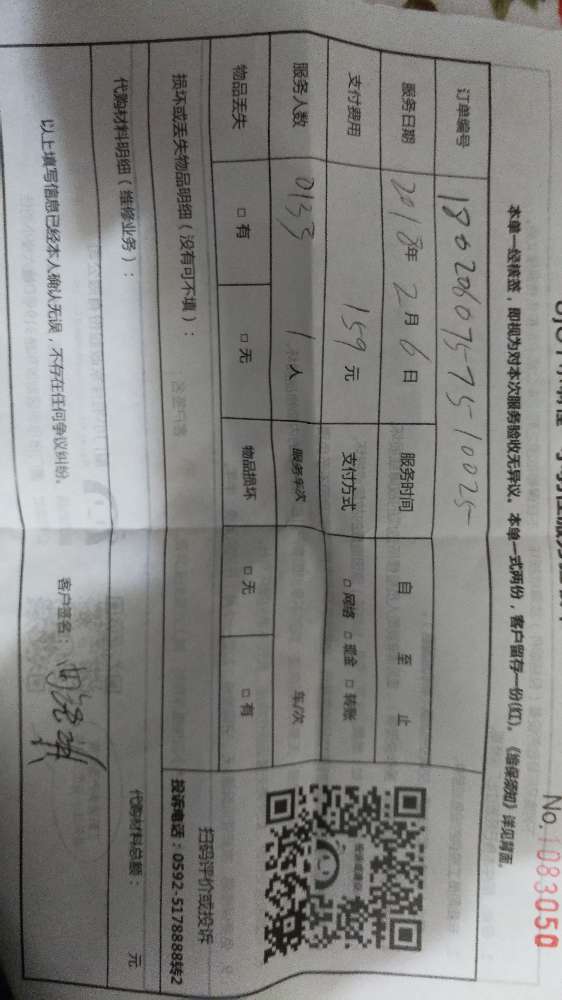 No.1083050
本单一经核签，即视为对本次服务验收无异议。本单一式两份，客户留存一份(红)。《维保须知》详见背面。
订单编号 180206075-75-10025
服务日期 2018年 2月 6日 服务时间 自 至 止
支付费用 159元 支付方式 □网络 □现金 □转账
服务人数 0133 1人 服务车次 车/次
物品丢失 □有 □无 物品损坏 □无 □有
扫码评价或投诉
投诉电话：0592-5178888转2
损坏或丢失物品明细（没有可不填）：
代购材料明细（维修业务）： 代购材料总额： 元
以上填写信息已经本人确认无误，不存在任何争议纠纷。 客户签名：